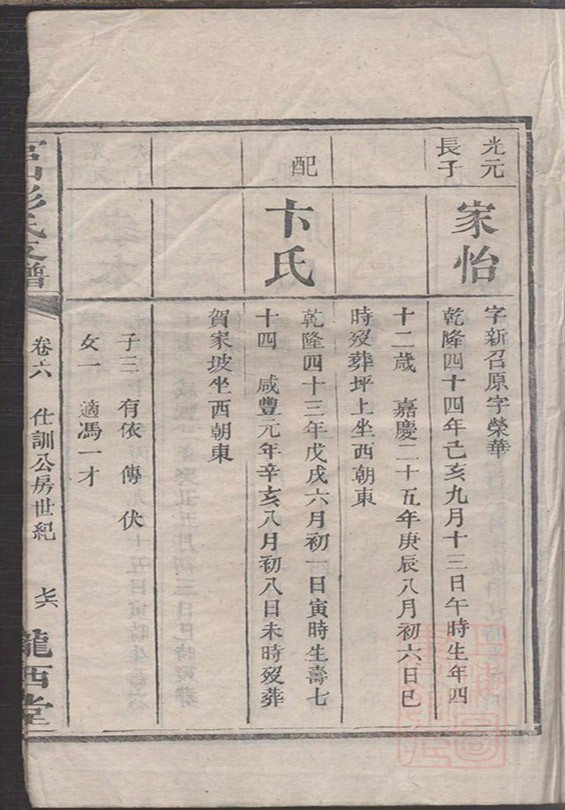 光元
長子
家怡
字新召原字榮華
乾隆四十四年己亥九月十三日午時生年四
十二歲 嘉慶二十五年庚辰八月初六日巳
時歿葬坪上坐西朝東
配
卞氏
乾隆四十三年戊戌六月初一日寅時生壽七
十四 咸豐元年辛亥八月初八日未時歿葬
賀家坡坐西朝東
子三 有依 傳 伏
女一 適馮一才
氏支譜
卷六 仕訓公房世紀
龍西堂